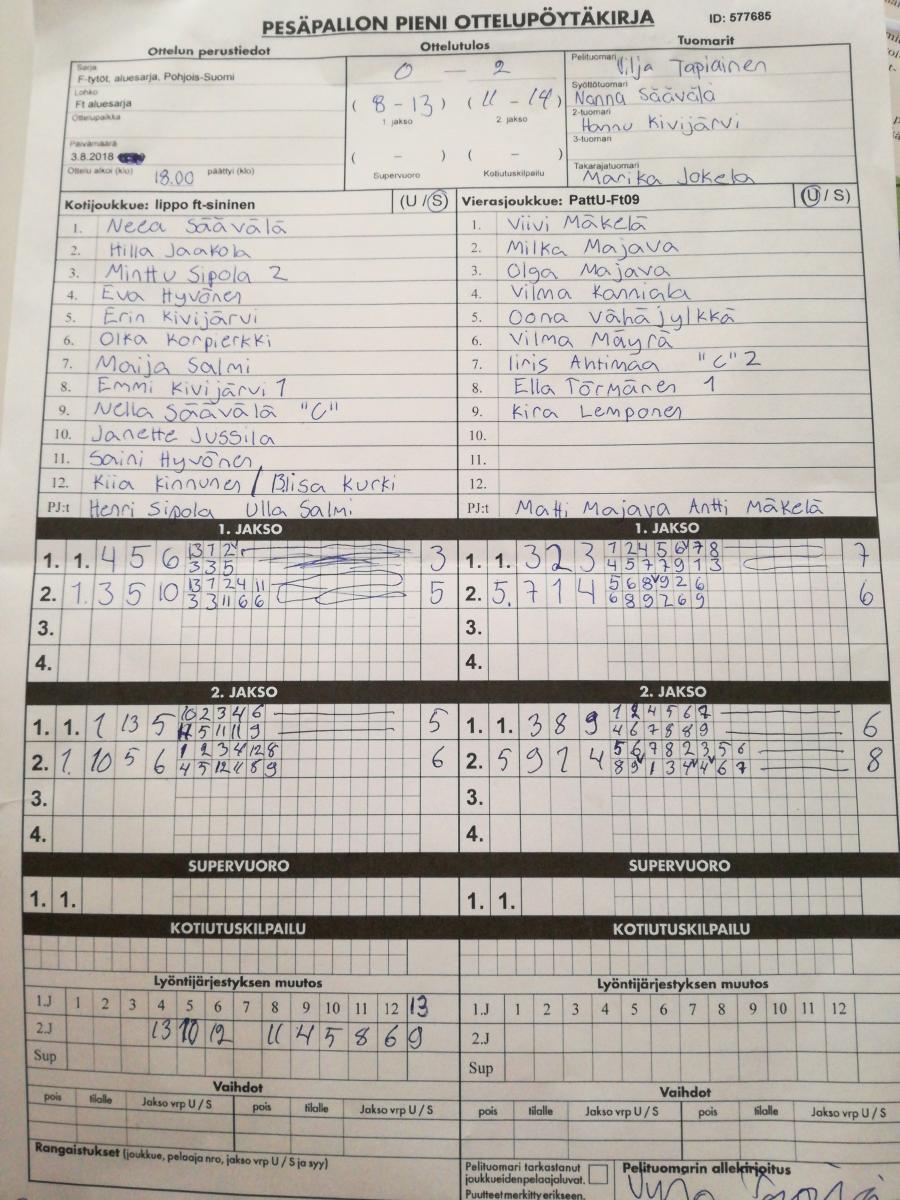 PESÄPALLON PIENI OTTELUPÖYTÄKIRJA
ID: 577685
Ottelun perustiedot
Ottelutulos
Tuomarit
Sarja
F-tytöt, aluesarja, Pohjois-Suomi
Lohko
Ft aluesarja
Ottelupaikka
Päivämäärä
3.8.2018
Ottelu alkoi (klo) 18.00 päättyi (klo)
0 – 2
( 8 - 13 ) ( 11 - 14 )
1 jakso 2. jakso
( – ) ( – )
Supervuoro Kotiutuskilpailu
Pelituomari Vilja Tapiainen
Syöttötuomari
Nanna Säävälä
2-tuomari
Hannu Kivijärvi
3-tuomari
Takarajatuomari
Marika Jokela
Kotijoukkue: lippo ft-sininen (U / S)
1. Neea Säävälä
2. Hilla Jaakola
3. Minttu Sipola 2
4. Eva Hyvönen
5. Erin Kivijärvi
6. Olka Korpierkki
7. Maija Salmi
8. Emmi Kivijärvi 1
9. Nella Säävälä "C"
10. Janette Jussila
11. Saini Hyvönen
12. Kiia Kinnunen / Elisa Kurki
PJ:t Henri Sipola Ulla Salmi
Vierasjoukkue: PattU-Ft09 (U / S)
1. Viivi Mäkelä
2. Milka Majava
3. Olga Majava
4. Vilma Kanniala
5. Oona Vähäjylkkä
6. Vilma Mäyrä
7. Iiris Ahtimaa "C" 2
8. Ella Törmänen 1
9. Kira Lemponen
10.
11.
12.
PJ:t Matti Majava Antti Mäkelä
1. JAKSO
1. 1. 4 5 6 13 1 2 3
3 3 5
2. 1. 3 5 10 13 1 2 4 11 5
3 3 11 6 6
3.
4.
1. JAKSO
1. 1. 3 2 3 1 2 4 5 6 7 8 7
4 5 7 7 9 1 3
2. 5. 7 1 4 5 6 8 9 2 6 6
6 8 9 2 6 9
3.
4.
2. JAKSO
1. 1. 1 13 5 10 2 3 4 6 5
5 11 11 9
2. 1. 10 5 6 1 2 3 4 12 8 6
4 5 12 11 8 9
3.
4.
2. JAKSO
1. 1. 3 8 9 1 2 4 5 6 7 6
4 6 7 8 8 9
2. 5 9 1 4 5 6 7 8 2 3 5 6 8
8 9 1 3 4 4 6 7
3.
4.
SUPERVUORO
1. 1.
SUPERVUORO
1. 1.
KOTIUTUSKILPAILU
KOTIUTUSKILPAILU
Lyöntijärjestyksen muutos
1.J 1 2 3 4 5 6 7 8 9 10 11 12 13
2.J 13 10 12 11 4 5 8 6 9
Sup
Lyöntijärjestyksen muutos
1.J 1 2 3 4 5 6 7 8 9 10 11 12
2.J
Sup
Vaihdot
pois tilalle Jakso vrp U / S pois tilalle Jakso vrp U / S
Vaihdot
pois tilalle Jakso vrp U / S pois tilalle Jakso vrp U / S
Rangaistukset (joukkue, pelaaja nro, jakso vrp U / S ja syy)
Pelituomari tarkastanut
joukkueidenpelaajaluvat.
Puutteet merkitty erikseen.
Pelituomarin allekirjoitus